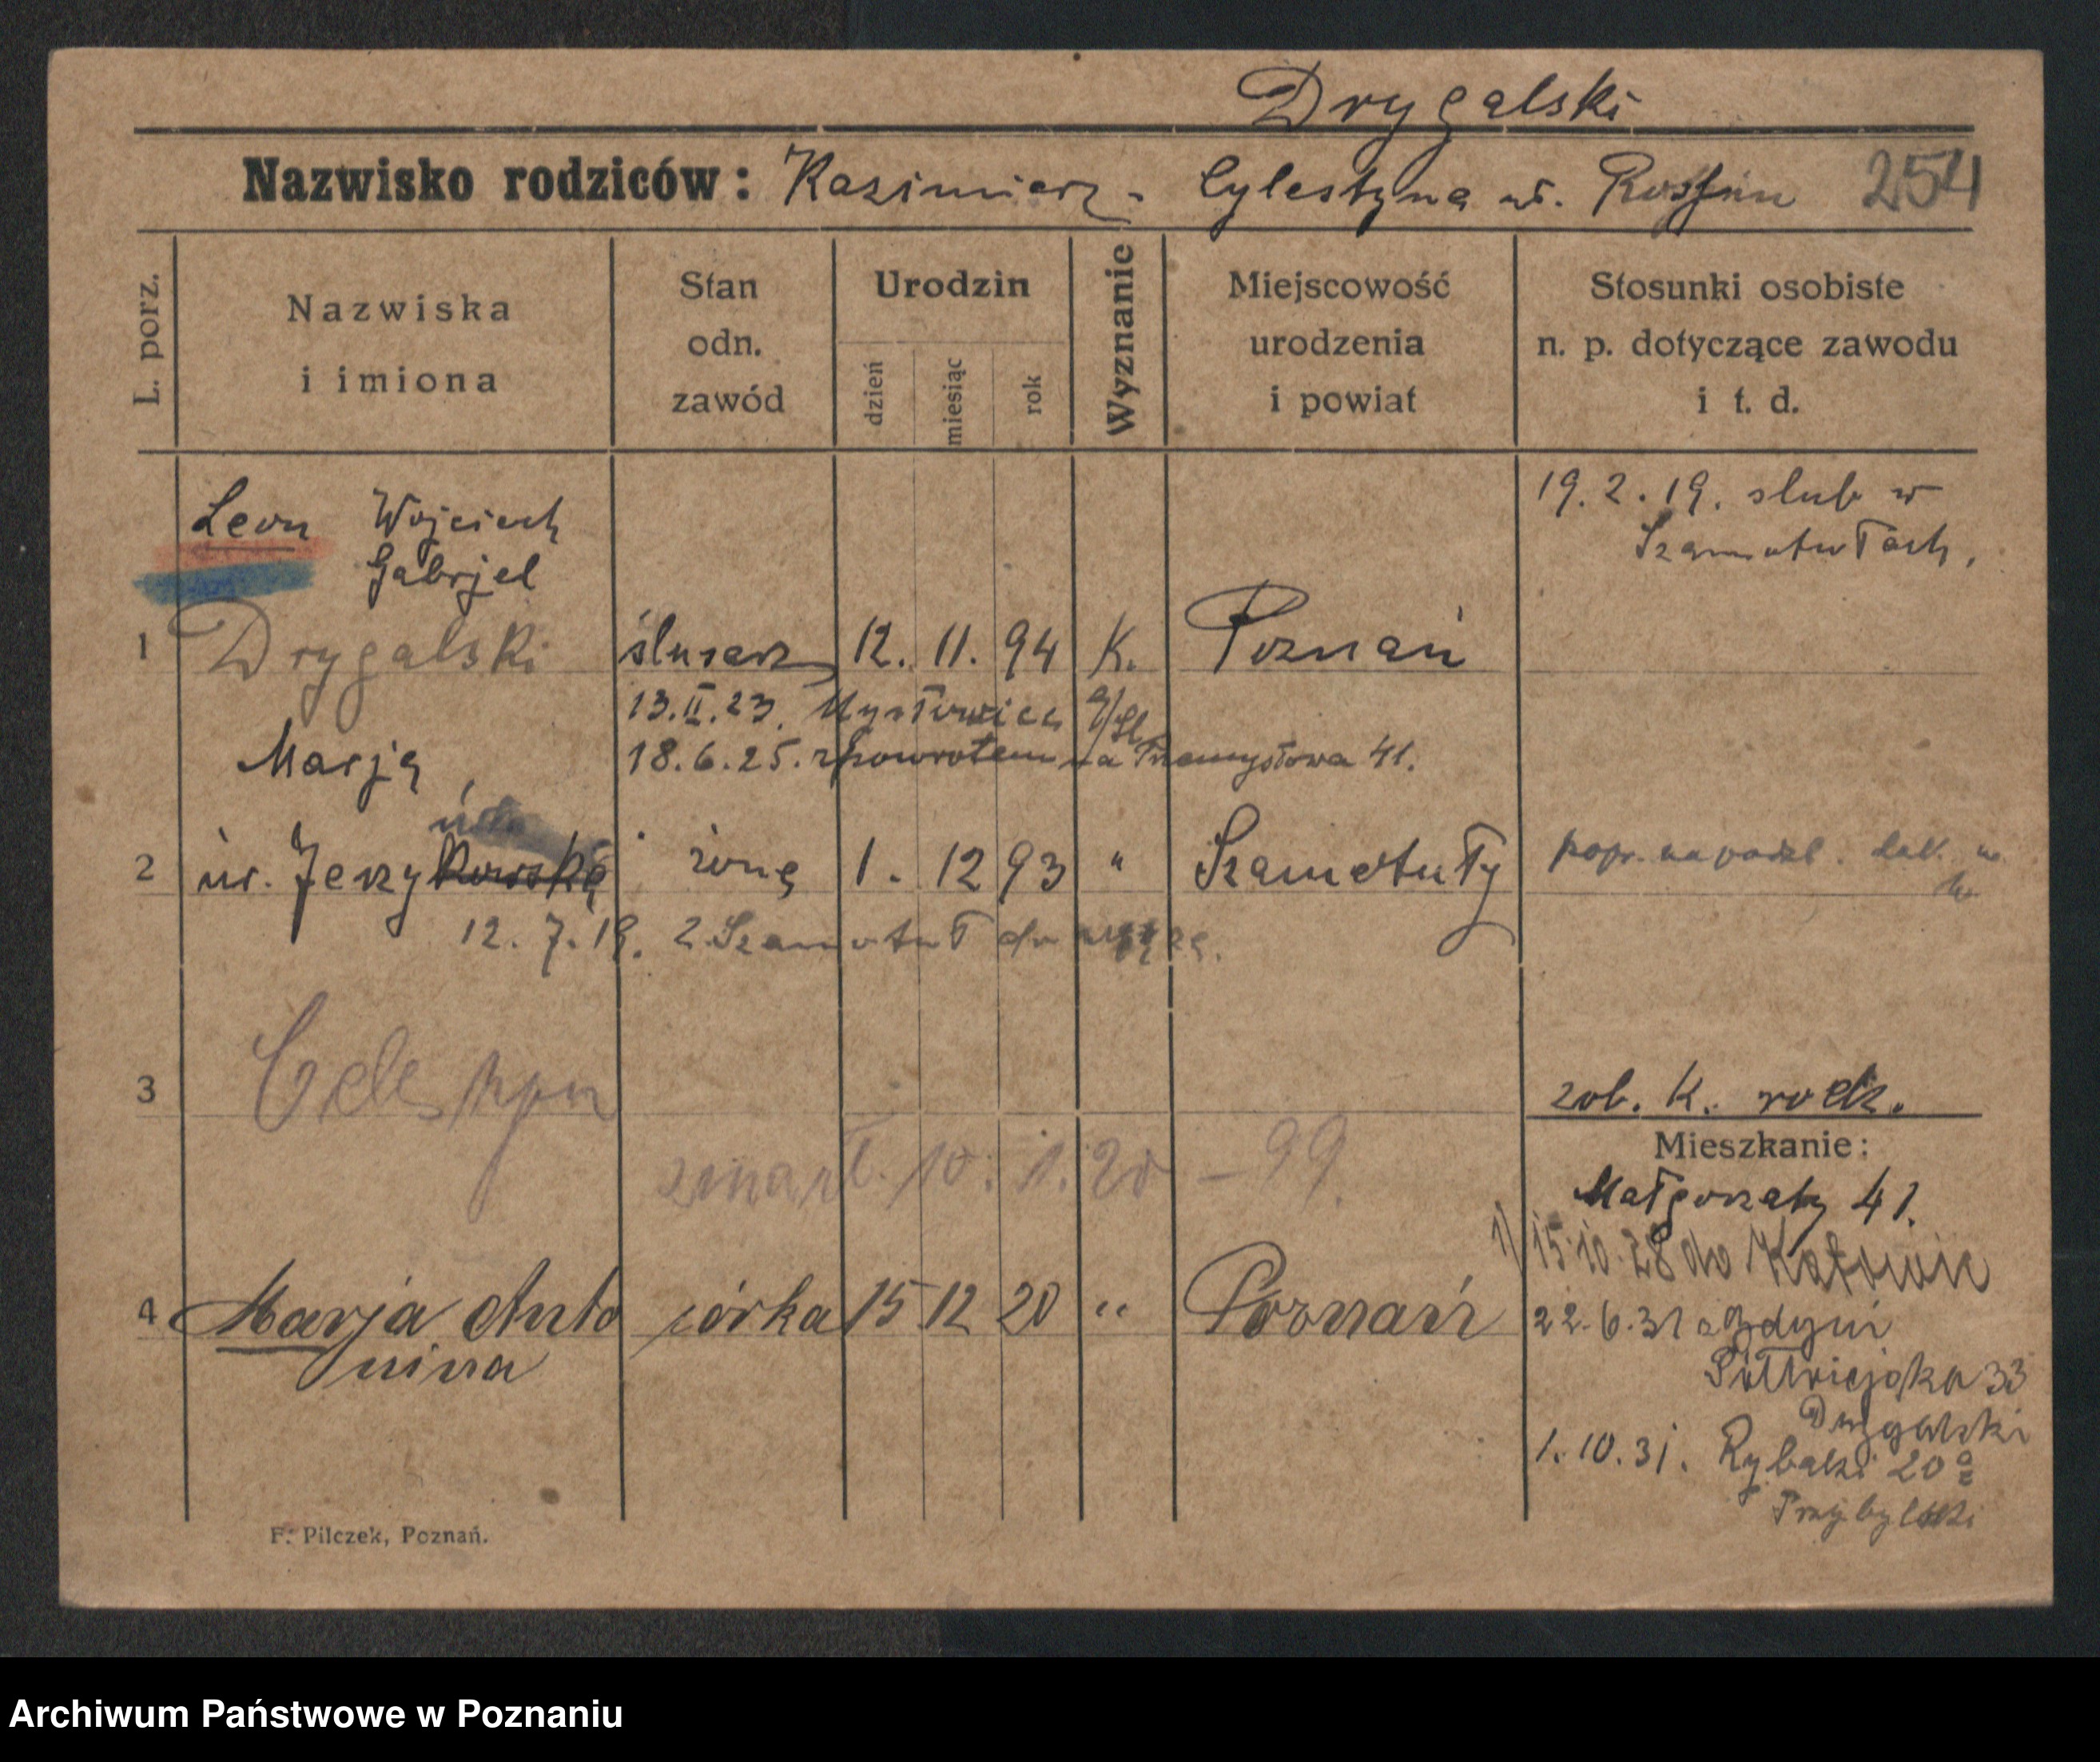 Drygalski
Nazwisko rodziców: Kazimierz - Cylestyna ur. 254
L. porz.
Nazwiska i imiona
Stan odn. zawód
Urodzin
dzień
miesiąc
rok
Wyznanie
Miejscowość urodzenia i powiat
Stosunki osobiste n. p. dotyczące zawodu i t. d.
19. 2. 19. slub w
Szamotułach,
Leon Wojciech
Gabrjel
1 Drygalski ślusarz 12. 11. 94 K. Poznań
13.II.23. Mysłowice G/Śl
18.6.25. zpowrotem na Przemysłowa 41.
Marja
2 ur. Jerzykowska żona 1. 12 93 " Szamotuły
12. 7. 19. z Szamotuł do męża.
3 Celestyn
zob. K. rodz.
zmarł. 10. 1. 20 - 99.
Mieszkanie:
Małgorzaty 41.
1) 15.10.28 do Katowic
4 Marja Anto córka 15 12 20 " Poznań
nina
22.6.31 z Gdyni
Półwiejska 33
Drygalski
1.10.31. Rybaki 20a
Przybylski
F. Pilczek, Poznań.
Archiwum Państwowe w Poznaniu